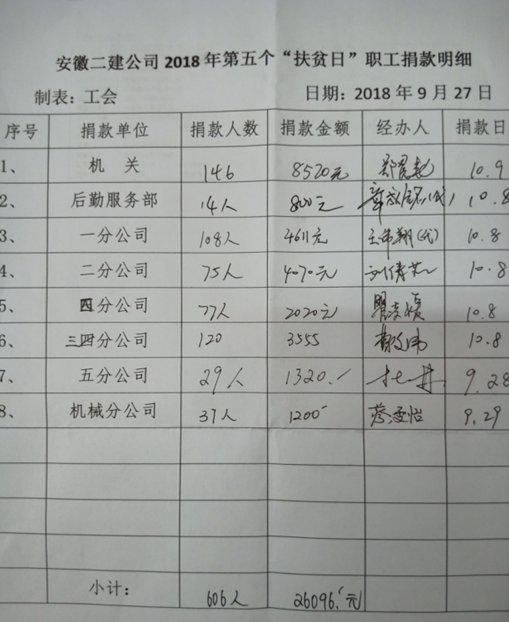 安徽二建公司2018年第五个“扶贫日”职工捐款明细
制表：工会 日期：2018年9月27日
序号 捐款单位 捐款人数 捐款金额 经办人 捐款日
1、 机 关 146 8520元 10.9
2、 后勤服务部 14人 800元 10.8
3、 一分公司 108人 4611元 王伟翔(代) 10.8
4、 二分公司 75人 4070元 10.8
5、 四分公司 77人 2020元 10.8
6、 三四分公司 120 3555 10.8
7、 五分公司 29人 1320.- 9.28
8、 机械分公司 37人 1200- 9.29
小计： 606人 26096.-元